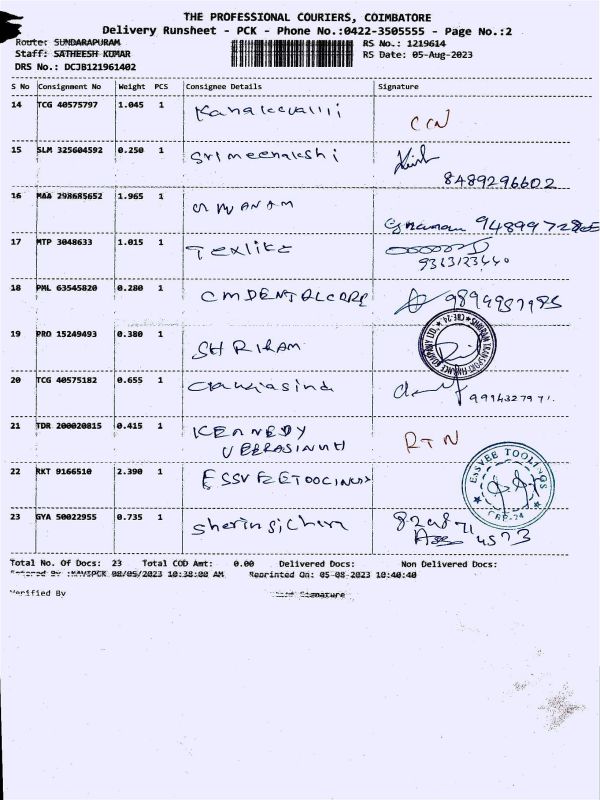 THE PROFESSIONAL COURIERS, COIMBATORE
Delivery Runsheet - PCK - Phone No.:0422-3505555 - Page No.:2
Route: SUNDARAPURAM RS No.: 1219614
Staff: SATHEESH KUMAR RS Date: 05-Aug-2023
DRS No.: DCJB121961402
S No Consignment No Weight PCS Consignee Details Signature
14 TCG 40575797 1.045 1
CCN
15 SLM 325604592 0.250 1 Srimeenakshi
8489296602
16 MAA 298685652 1.965 1
Gnanam
17 MTP 3048633 1.015 1 Texlike
18 PML 63545820 0.280 1 CMDENTALCARE
19 PRO 15249493 0.380 1 SHRIRAM
SHRIRAM TRANSPORT FINANCE COMPANY LTD. CBE-24
20 TCG 40575182 0.655 1
21 TDR 200020815 0.415 1 KENNEDY
RTN
22 RKT 9166510 2.390 1
ESSVEE TOOLINGS
23 GYA 50022955 0.735 1
Total No. Of Docs: 23 Total COD Amt: 0.00 Delivered Docs: Non Delivered Docs:
08/05/2023 10:38:00 AM Reprinted On: 05-08-2023 10:40:40
Verified By Signature